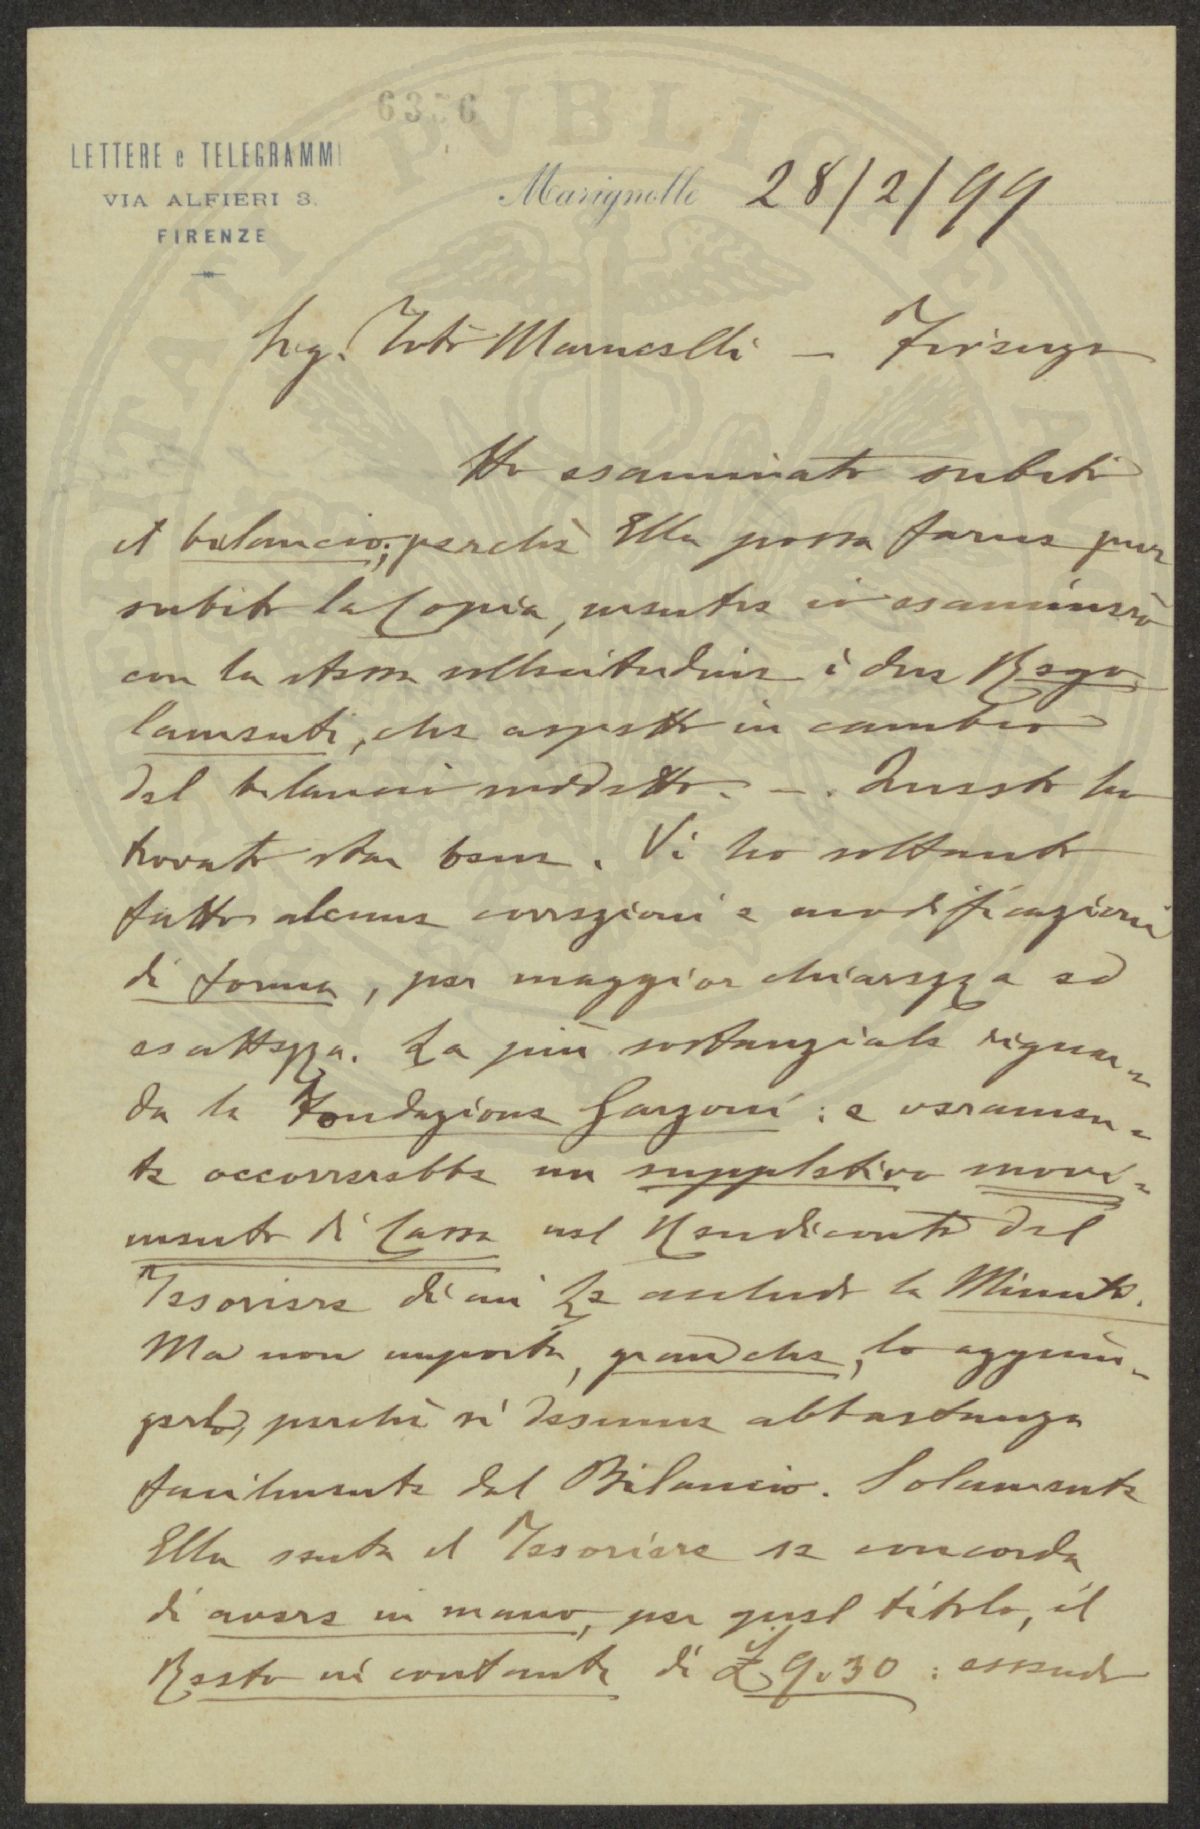 6356
LETTERE e TELEGRAMMI
VIA ALFIERI 3.
FIRENZE
Marignolle 28/2/99
Sig. Marucelli — Firenze
Ho esaminato subito
il bilancio; perchè Ella possa farne pur
subito la Copia, mentre io esaminerò
con la stessa sollecitudine i due Rego-
lamenti, che aspetto in cambio
del bilancio suddetto. — . Questo ho
trovato star bene. Vi ho soltanto
fatto alcune correzioni e modificazioni
di forma, per maggior chiarezza ed
esattezza. La più sostanziale riguar=
da la Fondazione Garzoni: e veramen=
te occorrerebbe un suppletivo movi=
mento di Cassa nel Rendiconto del
Tesoriere di cui Le acchiudo la Minuta.
Ma non importa, granchè, lo aggiun=
gerlo, perchè si desume abbastanza
facilmente dal Bilancio. Solamente
Ella senta il Tesoriere se concorda
di avere in mano, per quel titolo, il
Resto in contante di £ 9.30: essendo